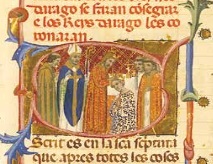 darago se faran consegrar
e los Reys darago les co
ronaran.
Scrit es en la sca scriptura
que apres totes les coses